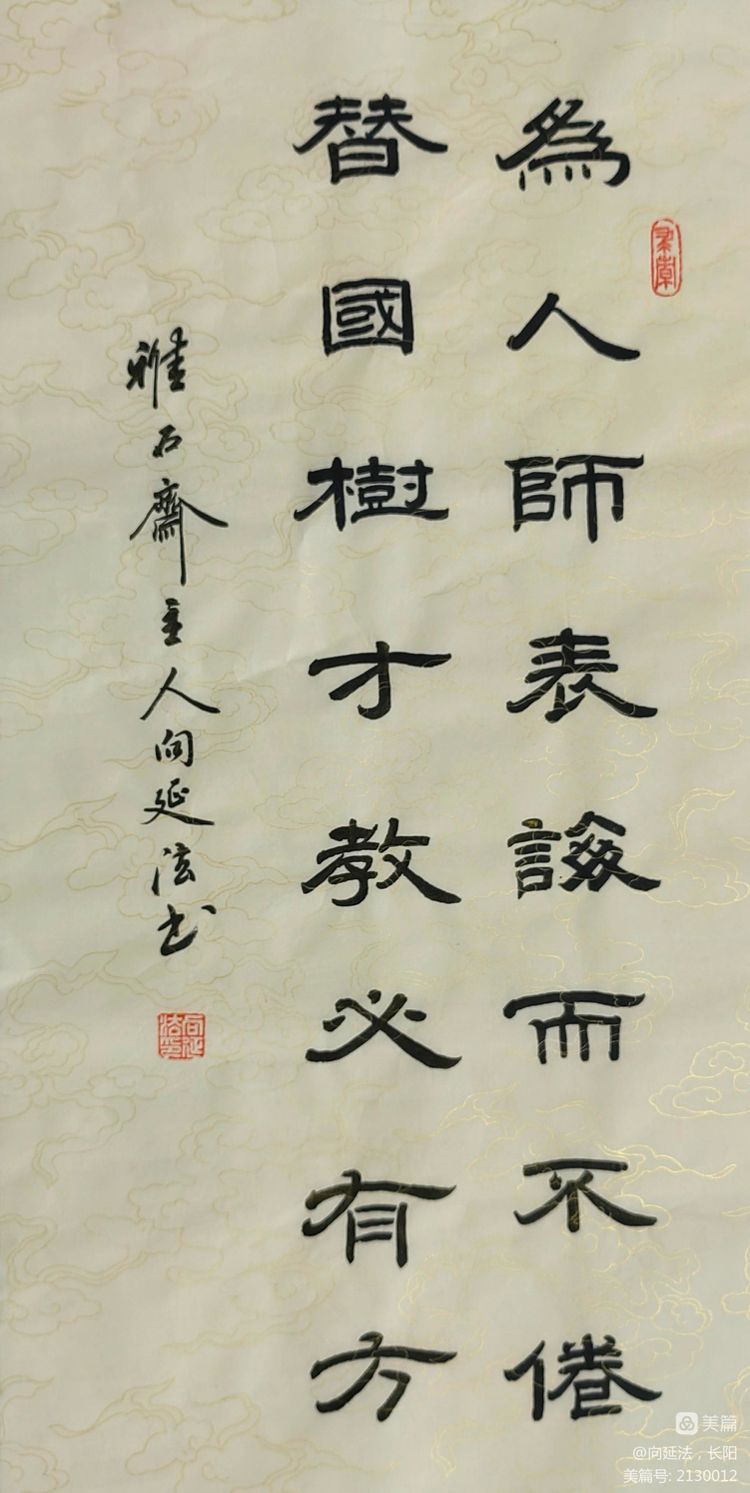 為人師表誨而不倦
替國樹才教必有方
雅石齋主人向延法书
向延法印
美篇
@向延法，长阳
美篇号: 2130012